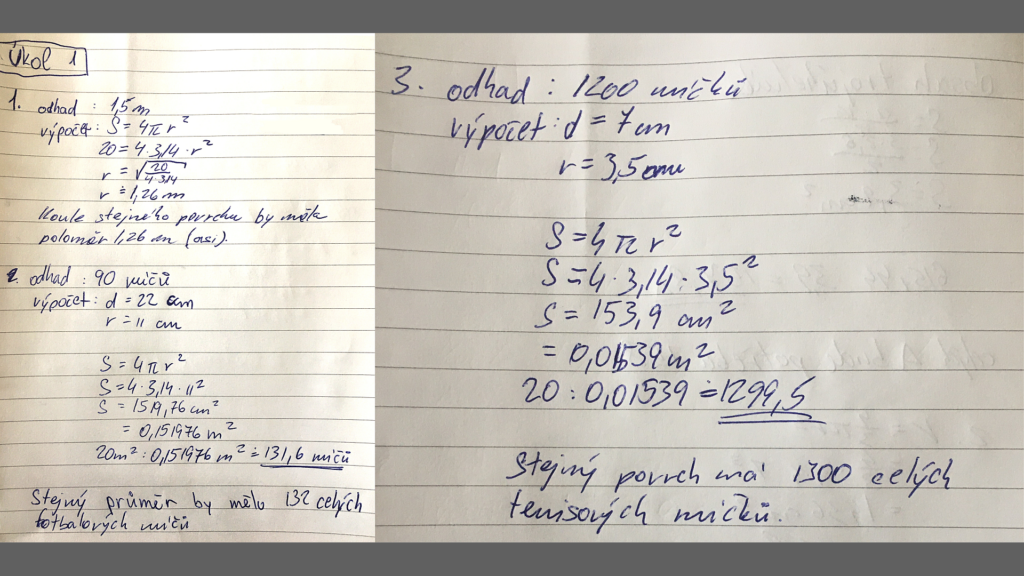 Úkol 1
1. odhad : 1,5 m
výpočet : S = 4πr²
20 = 4·3,14·r²
r = √20/4·3,14
r ≐ 1,26 m
Koule stejného povrchu by měla
poloměr 1,26 m (asi).
2. odhad : 90 míčů
výpočet : d = 22 cm
r = 11 cm
S = 4πr²
S = 4·3,14·11²
S = 1519,76 cm²
= 0,151976 m²
20m² : 0,151976 m² ≐ 131,6 míčů
Stejný průměr by mělo 132 celých
fotbalových míčů
3. odhad : 1200 míčků
výpočet : d = 7 cm
r = 3,5 cm
S = 4πr²
S = 4·3,14·3,5²
S = 153,9 cm²
= 0,01539 m²
20 : 0,01539 ≐ 1299,5
Stejný povrch má 1300 celých
tenisových míčků.